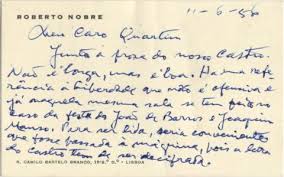 ROBERTO NOBRE
11-6-56
Meu Caro Quartim
Junto a prosa do nosso Castro.
Não é longa, mas é boa. Ha uma refe-
rência à liberdade que não é ofensiva e
já naquela mesma sala se tem feito no
caso da festa do João de Barros e Joaquim
Manso. Para ser lida, seria conveniente
que fosse passada à máquina, pois a letra
do Castro tem de ser decifrada.
R. CAMILO CASTELO BRANCO, D.º - LISBOA